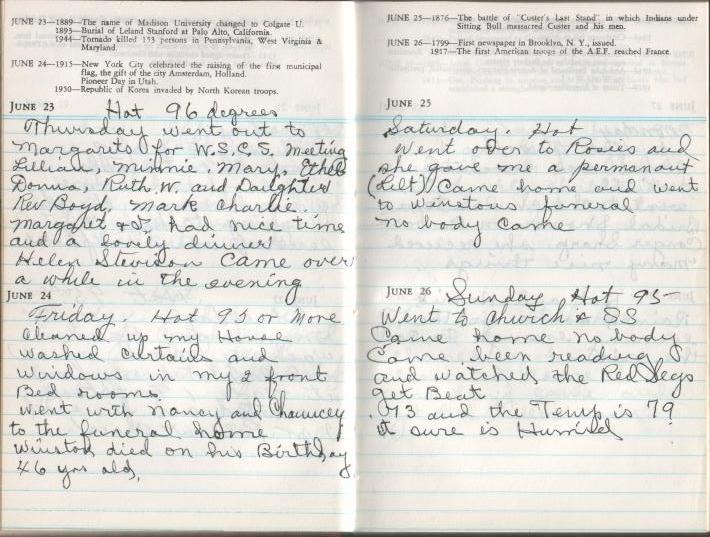 JUNE 23—1889—The name of Madison University changed to Colgate U.
1893—Burial of Leland Stanford at Palo Alto, California.
1944—Tornado killed 153 persons in Pennsylvania, West Virginia &
Maryland.
JUNE 24—1915—New York City celebrated the raising of the first municipal
flag, the gift of the city Amsterdam, Holland.
Pioneer Day in Utah.
1950—Republic of Korea invaded by North Korean troops.
JUNE 23 Hot 96 degrees
Thursday went out to
Margarets for W.S.C.S. Meeting
Lillian, Minnie, Mary, Ethel
Donna, Ruth W. and Daughter
Rev Boyd, Mark Charlie.
Margaret & I had nice time
and a lovely dinner
Helen Stevison Came over
a while in the evening
JUNE 24
Friday. Hot 95 or More
Cleaned up my House
washed Curtains and
Windows in my 2 front
Bed rooms.
Went with Nancy and Chauncey
to the funeral home
Winston died on his Birthday
46 yrs old.
JUNE 25—1876—The battle of "Custer's Last Stand" in which Indians under
Sitting Bull massacred Custer and his men.
JUNE 26—1799—First newspaper in Brooklyn, N. Y., issued.
1917—The first American troops of the A.E.F. reached France.
JUNE 25
Saturday. Hot
Went over to Rosies and
she gave me a permanant
(Lilt) Came home and went
to Winstons funeral
no body came
JUNE 26 Sunday Hot 95
Went to Church & SS
Came home no body
Came, been reading
and watched the Red Legs
get Beat
and the Temp is 79
it sure is Humid